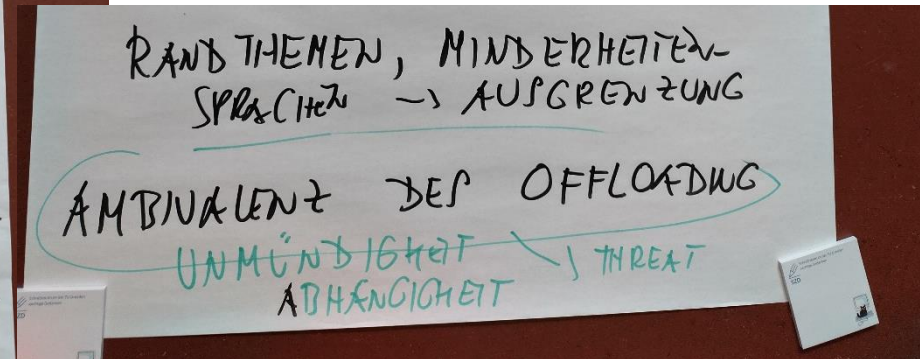 RANDTHEMEN, MINDERHEITEN-
SPRACHEN → AUSGRENZUNG
AMBIVALENZ DES OFFLOADING
UNMÜNDIGKEIT → THREAT
ABHÄNGIGKEIT
SZD
SZD